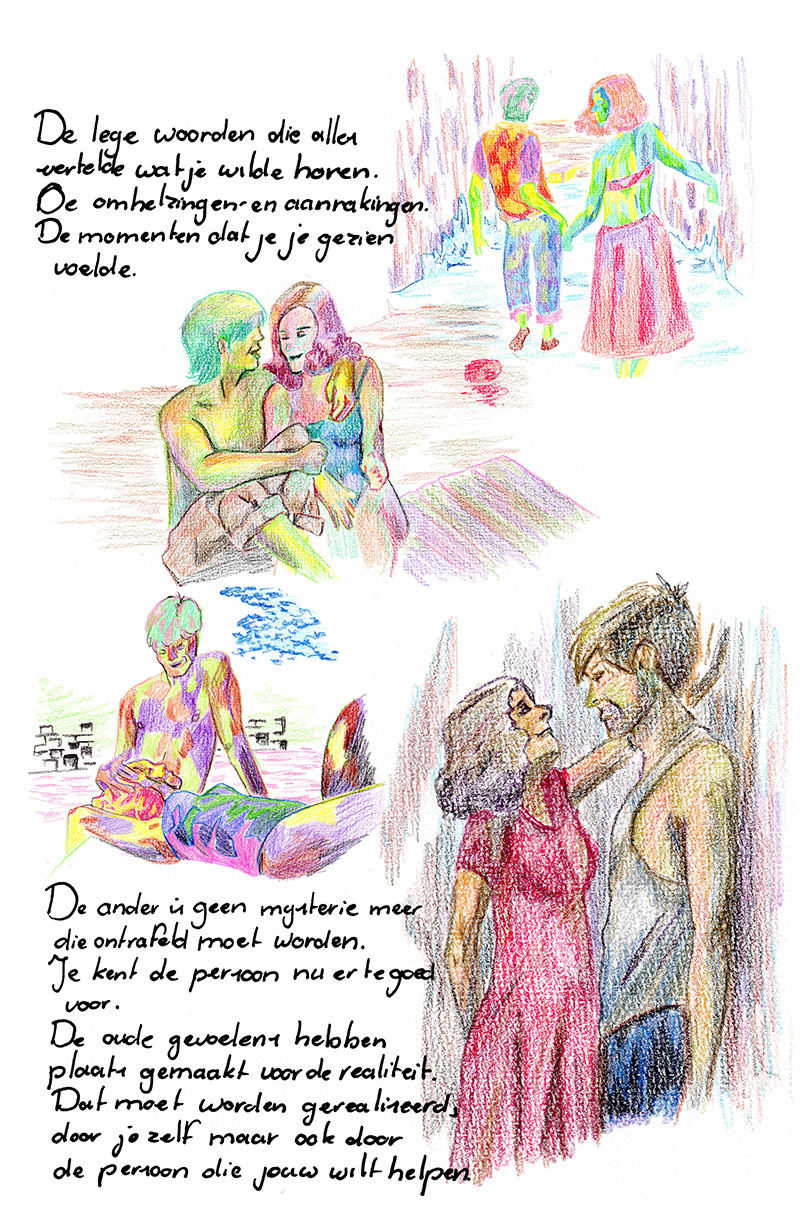 De lege woorden die alles
vertelde wat je wilde horen.
De omhelzingen en aanrakingen.
De momenten dat je je gezien
voelde.
De ander is geen mysterie meer
die ontrafeld moet worden.
Je kent de persoon nu er te goed
voor.
De oude gevoelens hebben
plaats gemaakt voor de realiteit.
Dat moet worden gerealiseerd,
door je zelf maar ook door
de persoon die jouw wilt helpen.